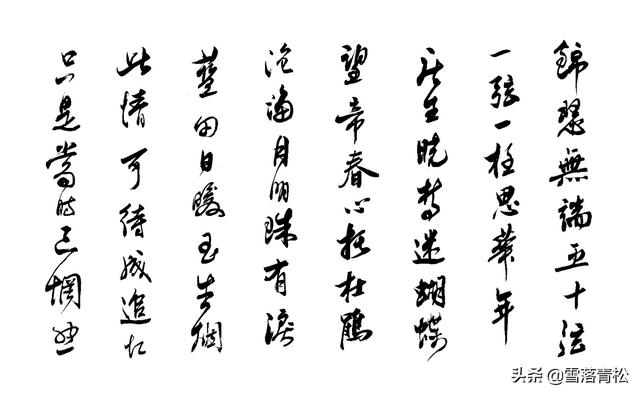 錦瑟無端五十弦
一弦一柱思華年
庄生曉梦迷蝴蝶
望帝春心托杜鵑
滄海月明珠有淚
藍田日暖玉生烟
此情可待成追忆
只是當时已惘然
头条 @雪落青松